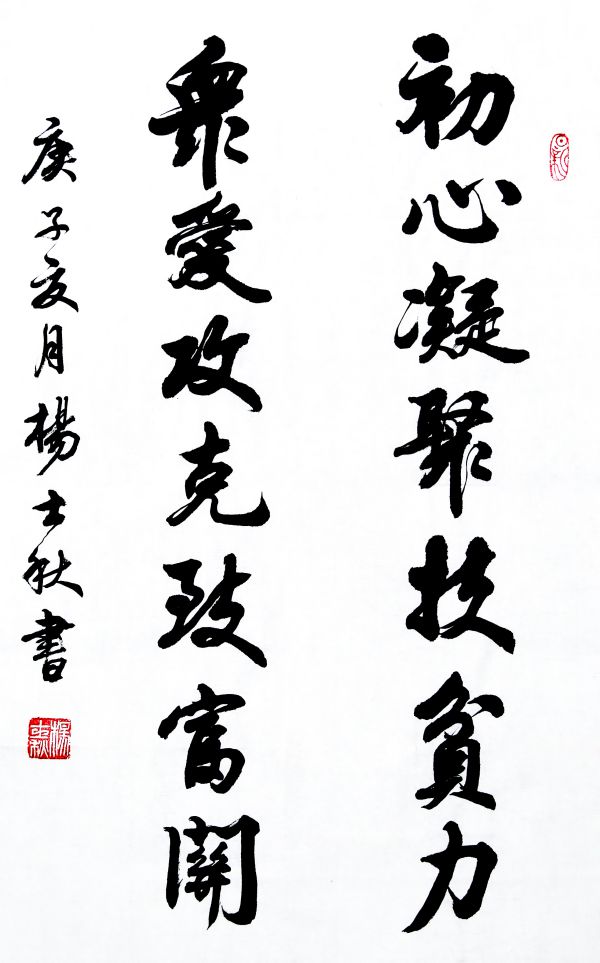 初心凝聚扶貧力
衆愛攻克致富關
庚子亥月楊士秋書